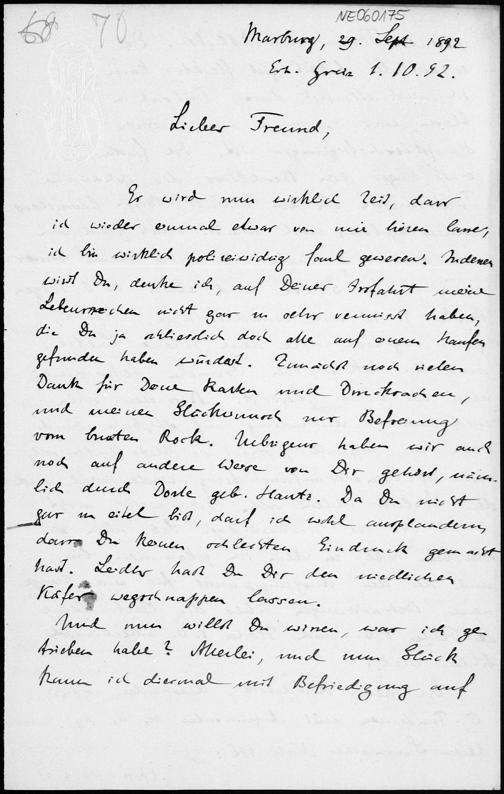 NE060175
68 70
Marburg, 29. Sept 1892
Erh. Greiz 1.10.92.
Lieber Freund,
Es wird nun wirklich Zeit, dass
ich wieder einmal etwas von mir hören lasse,
ich bin wirklich polizeiwidrig faul gewesen. Indessen
wirst Du, denke ich, auf Deiner Irrfahrt meine
Lebenszeichen nicht gar zu sehr vermisst haben,
die Du ja schliesslich doch alle auf einem Haufen
gefunden haben würdest. Zunächst noch vielen
Dank für Deine Karten und Drucksachen,
und meinen Glückwunsch zur Befreiung
vom bunten Rock. Uebrigens haben wir auch
noch auf andere Weise von Dir gehört, näm-
lich durch Dorle geb. Hantz. Da Du nicht
gar zu eitel bist, darf ich wohl ausplaudern,
dass Du keinen schlechten Eindruck gemacht
hast. Leider hast Du Dir den niedlichen
Käfer wegschnappen lassen.
Und nun willst Du wissen, was ich ge-
trieben habe? Allerlei, und zum Glück
kann ich diesmal mit Befriedigung auf